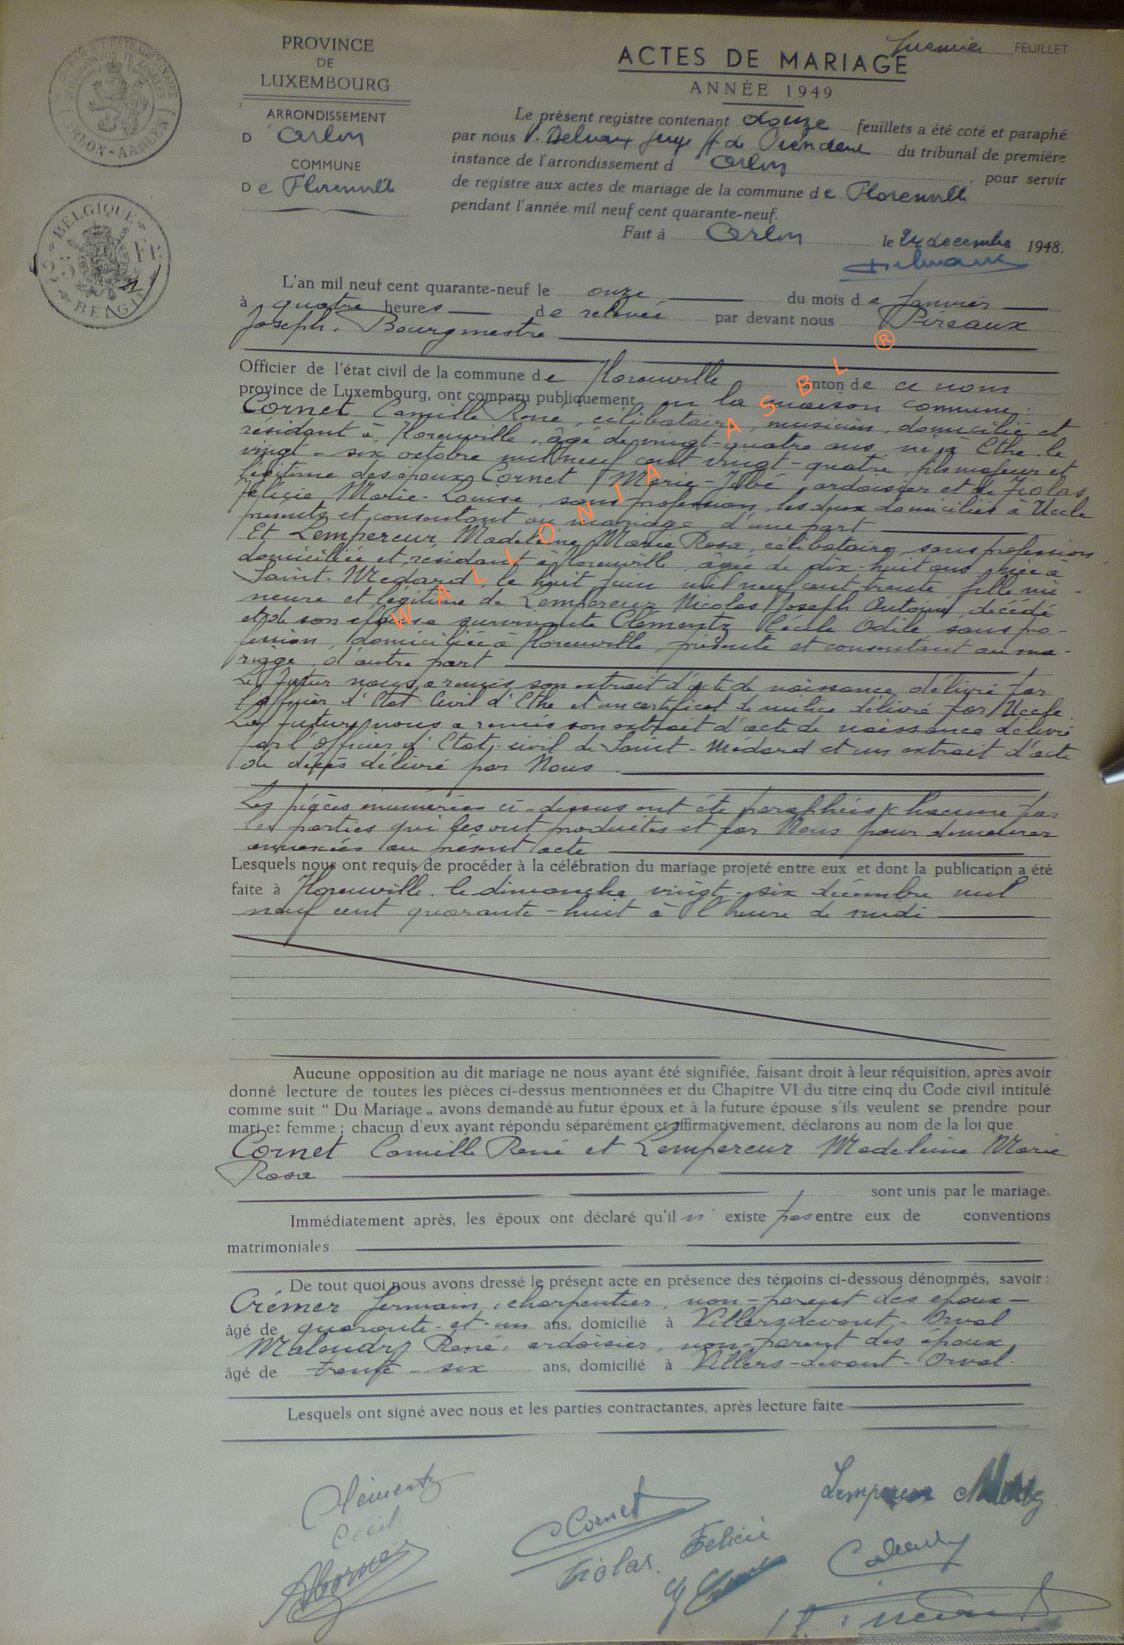 PROVINCE
DE
LUXEMBOURG
ARRONDISSEMENT
D'Arlon
COMMUNE
De Florenville
BELGIQUE
BELGIE
ARLON-AARLEN
Premier FEUILLET
ACTES DE MARIAGE
ANNÉE 1949
Le présent registre contenant douze feuillets a été coté et paraphé
par nous Delvaux Juge ff de Président du tribunal de première
instance de l'arrondissement d Arlon, pour servir
de registre aux actes de mariage de la commune de Florenville
pendant l'année mil neuf cent quarante-neuf.
Fait à Arlon le 24 decembre 1948.
L'an mil neuf cent quarante-neuf le onze du mois de Janvier
à quatre heures de relevée par devant nous Pireaux
Joseph, Bourgmestre
Officier de l'état civil de la commune de Florenville canton de ce nom
province de Luxembourg, ont comparu publiquement en la maison commune:
Cornet Camille René, célibataire, musicien, domicilié et
résidant à Florenville, âgé de vingt-quatre ans, né à Ethe le
vingt-six octobre mil neuf cent vingt-quatre, fils majeur et
légitime des époux Cornet Marie-Jubé, ardoisier et de Fiolas
Félicie Marie-Louise, sans profession, les deux domiciliés à Uccle
présents et consentant au mariage, d'une part
Et Lempereur Madeleine Marie Rosa, célibataire, sans profession
domiciliée et résidant à Florenville, âgée de dix-huit ans, née à
Saint-Médard, le huit Juin mil neuf cent trente, fille mi-
neure et légitime de Lempereur Nicolas Joseph Antoine, décédé
et de son épouse survivante Clémentz Cécile Odile, sans pro-
fession, domiciliée à Florenville, présente et consentant au ma-
riage, d'autre part
Le futur nous a remis son extrait d'acte de naissance délivré par
l'officier d'Etat Civil d'Ethe et un certificat de milice délivré par Uccle.
La future nous a remis son extrait d'acte de naissance délivré
par l'officier d'Etat civil de Saint-Médard et un extrait d'acte
de décès délivré par Nous.
Les pièces énumérées ci-dessus ont été paraphées chacune par
les parties qui les ont produites et par Nous pour demeurer
annexées au présent acte
Lesquels nous ont requis de procéder à la célébration du mariage projeté entre eux et dont la publication a été
faite à Florenville le dimanche vingt-six décembre mil
neuf cent quarante-huit à l'heure de midi
Aucune opposition au dit mariage ne nous ayant été signifiée, faisant droit à leur réquisition, après avoir
donné lecture de toutes les pièces ci-dessus mentionnées et du Chapitre VI du titre cinq du Code civil intitulé
comme suit "Du Mariage„ avons demandé au futur époux et à la future épouse s'ils veulent se prendre pour
mari et femme; chacun d'eux ayant répondu séparément et affirmativement, déclarons au nom de la loi que
Cornet Camille René et Lempereur Madeleine Marie
Rosa
sont unis par le mariage.
Immédiatement après, les époux ont déclaré qu'il n' existe pas entre eux de conventions
matrimoniales
De tout quoi nous avons dressé le présent acte en présence des témoins ci-dessous dénommés, savoir:
Crémer Germain, charpentier, non-parent des époux
âgé de quarante-et-un ans, domicilié à Villers-devant-Orval
Malondry René, ardoisier, non-parent des époux
âgé de trente-six ans, domicilié à Villers-devant-Orval.
Lesquels ont signé avec nous et les parties contractantes, après lecture faite
Clémentz
Cécile
Cornet
Fiolas Felicie
Lempereur
WALLONIA ASBL ®